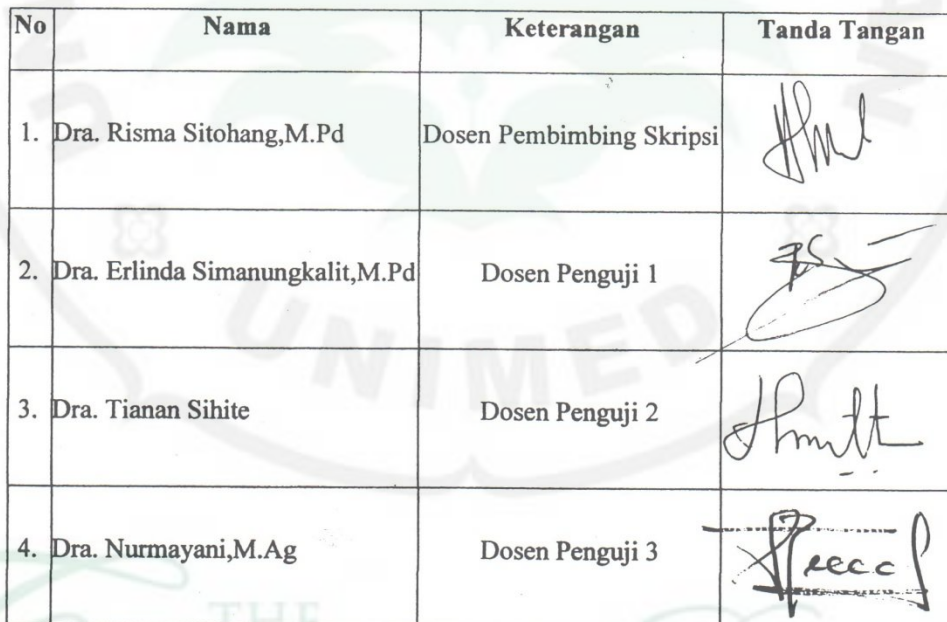 No Nama Keterangan Tanda Tangan
1. Dra. Risma Sitohang,M.Pd Dosen Pembimbing Skripsi
2. Dra. Erlinda Simanungkalit,M.Pd Dosen Penguji 1
3. Dra. Tianan Sihite Dosen Penguji 2
4. Dra. Nurmayani,M.Ag Dosen Penguji 3
UNIMED
THE